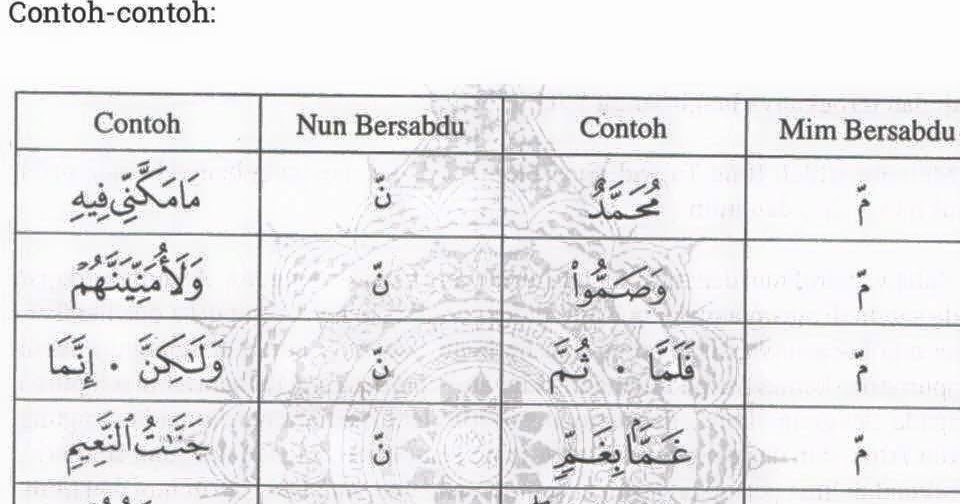 Contoh-contoh:
Contoh Nun Bersabdu Contoh Mim Bersabdu
مَامَكَّنِّي فِيهِ نّ مُحَمَّدٌ مّ
وَلَأُمَنِّيَنَّهُمْ نّ وَصَمُّوا۟ مّ
وَلَٰكِنَّ . إِنَّمَا نّ فَلَمَّا . ثُمَّ مّ
جَنَّٰتُ النَّعِيمِ نّ غَمًّا بِغَمٍّ مّ